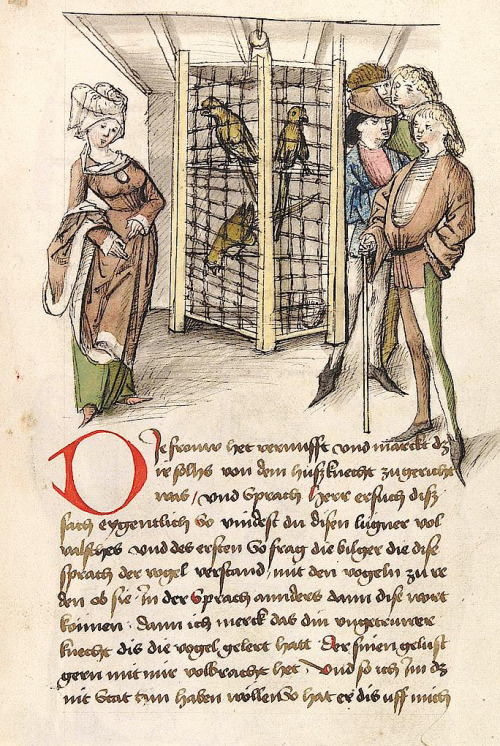 Die frouw het vernufft vnd marckt dz
ir sollis von dem huszknecht zu gericht
was / vnd sprach herr ersuch disz
sach eygentlich so vindest du disen lugner vol
valsches vnd des ersten so frag die bilger die dise
sprach der vogel verstand / mit den vogeln zu re
den ob sie in der sprach annders dann dise wort
koinnen. dann ich merck das din vngetruwer
knecht dis die vogel gelert hatt der sinen gelust
gern mit mir volbracht het. Vnd so ich im dz
nit stat tun haben wollen so hat er dis uff mich